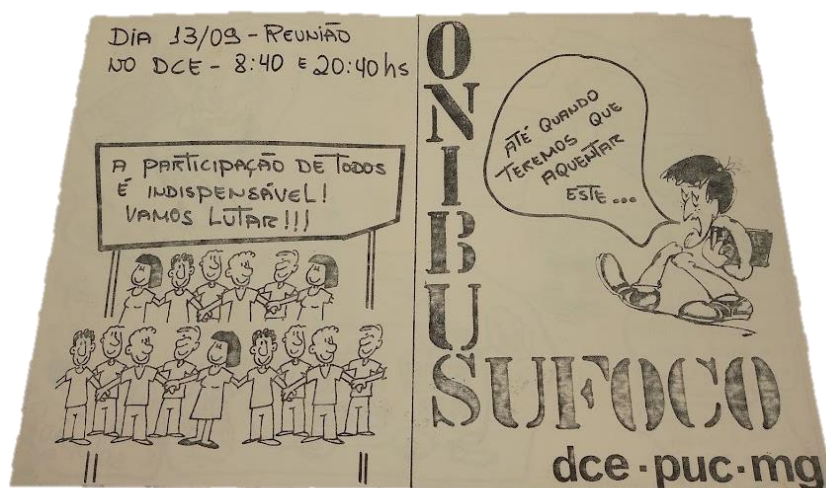 DIA 13/09 - REUNIÃO
NO DCE - 8:40 E 20:40 hs
A PARTICIPAÇÃO DE TODOS
É INDISPENSÁVEL!
VAMOS LUTAR!!!
ONIBUS
SUFOCO
ATÉ QUANDO
TEREMOS QUE
AQUENTAR
ESTE...
dce·puc·mg